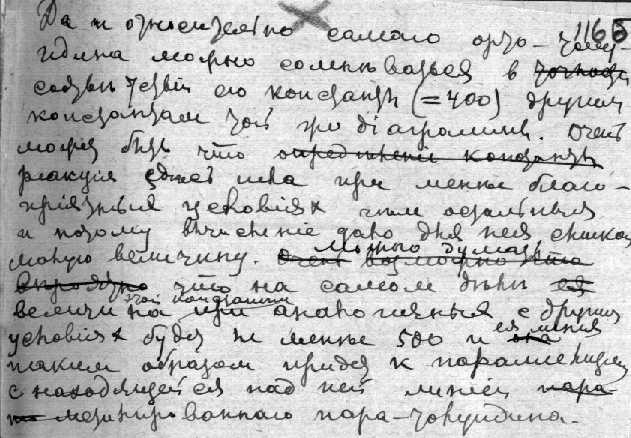 Да и относительно самого орто-толу- 116б
идина можно сомневаться в точност
соотвѣтствіи его константы (=400) другим
константам той же діаграммы. Очень
может быть что опредѣленіе константы
реакція здесь шла при менее благо-
пріятных условіях чем остальныя
и потому вычисленіе дало для нея слишком
малую величину. Очень возможно что можно думать
вероятно что на самом дѣлѣ ея
величина этой константы при аналогичных с другими
условіях будет не менѣе 500 и она ея линія
таким образом придет к параллелизму
с находящейся над ней линіей пара
метилированнаго пара-толуидина.